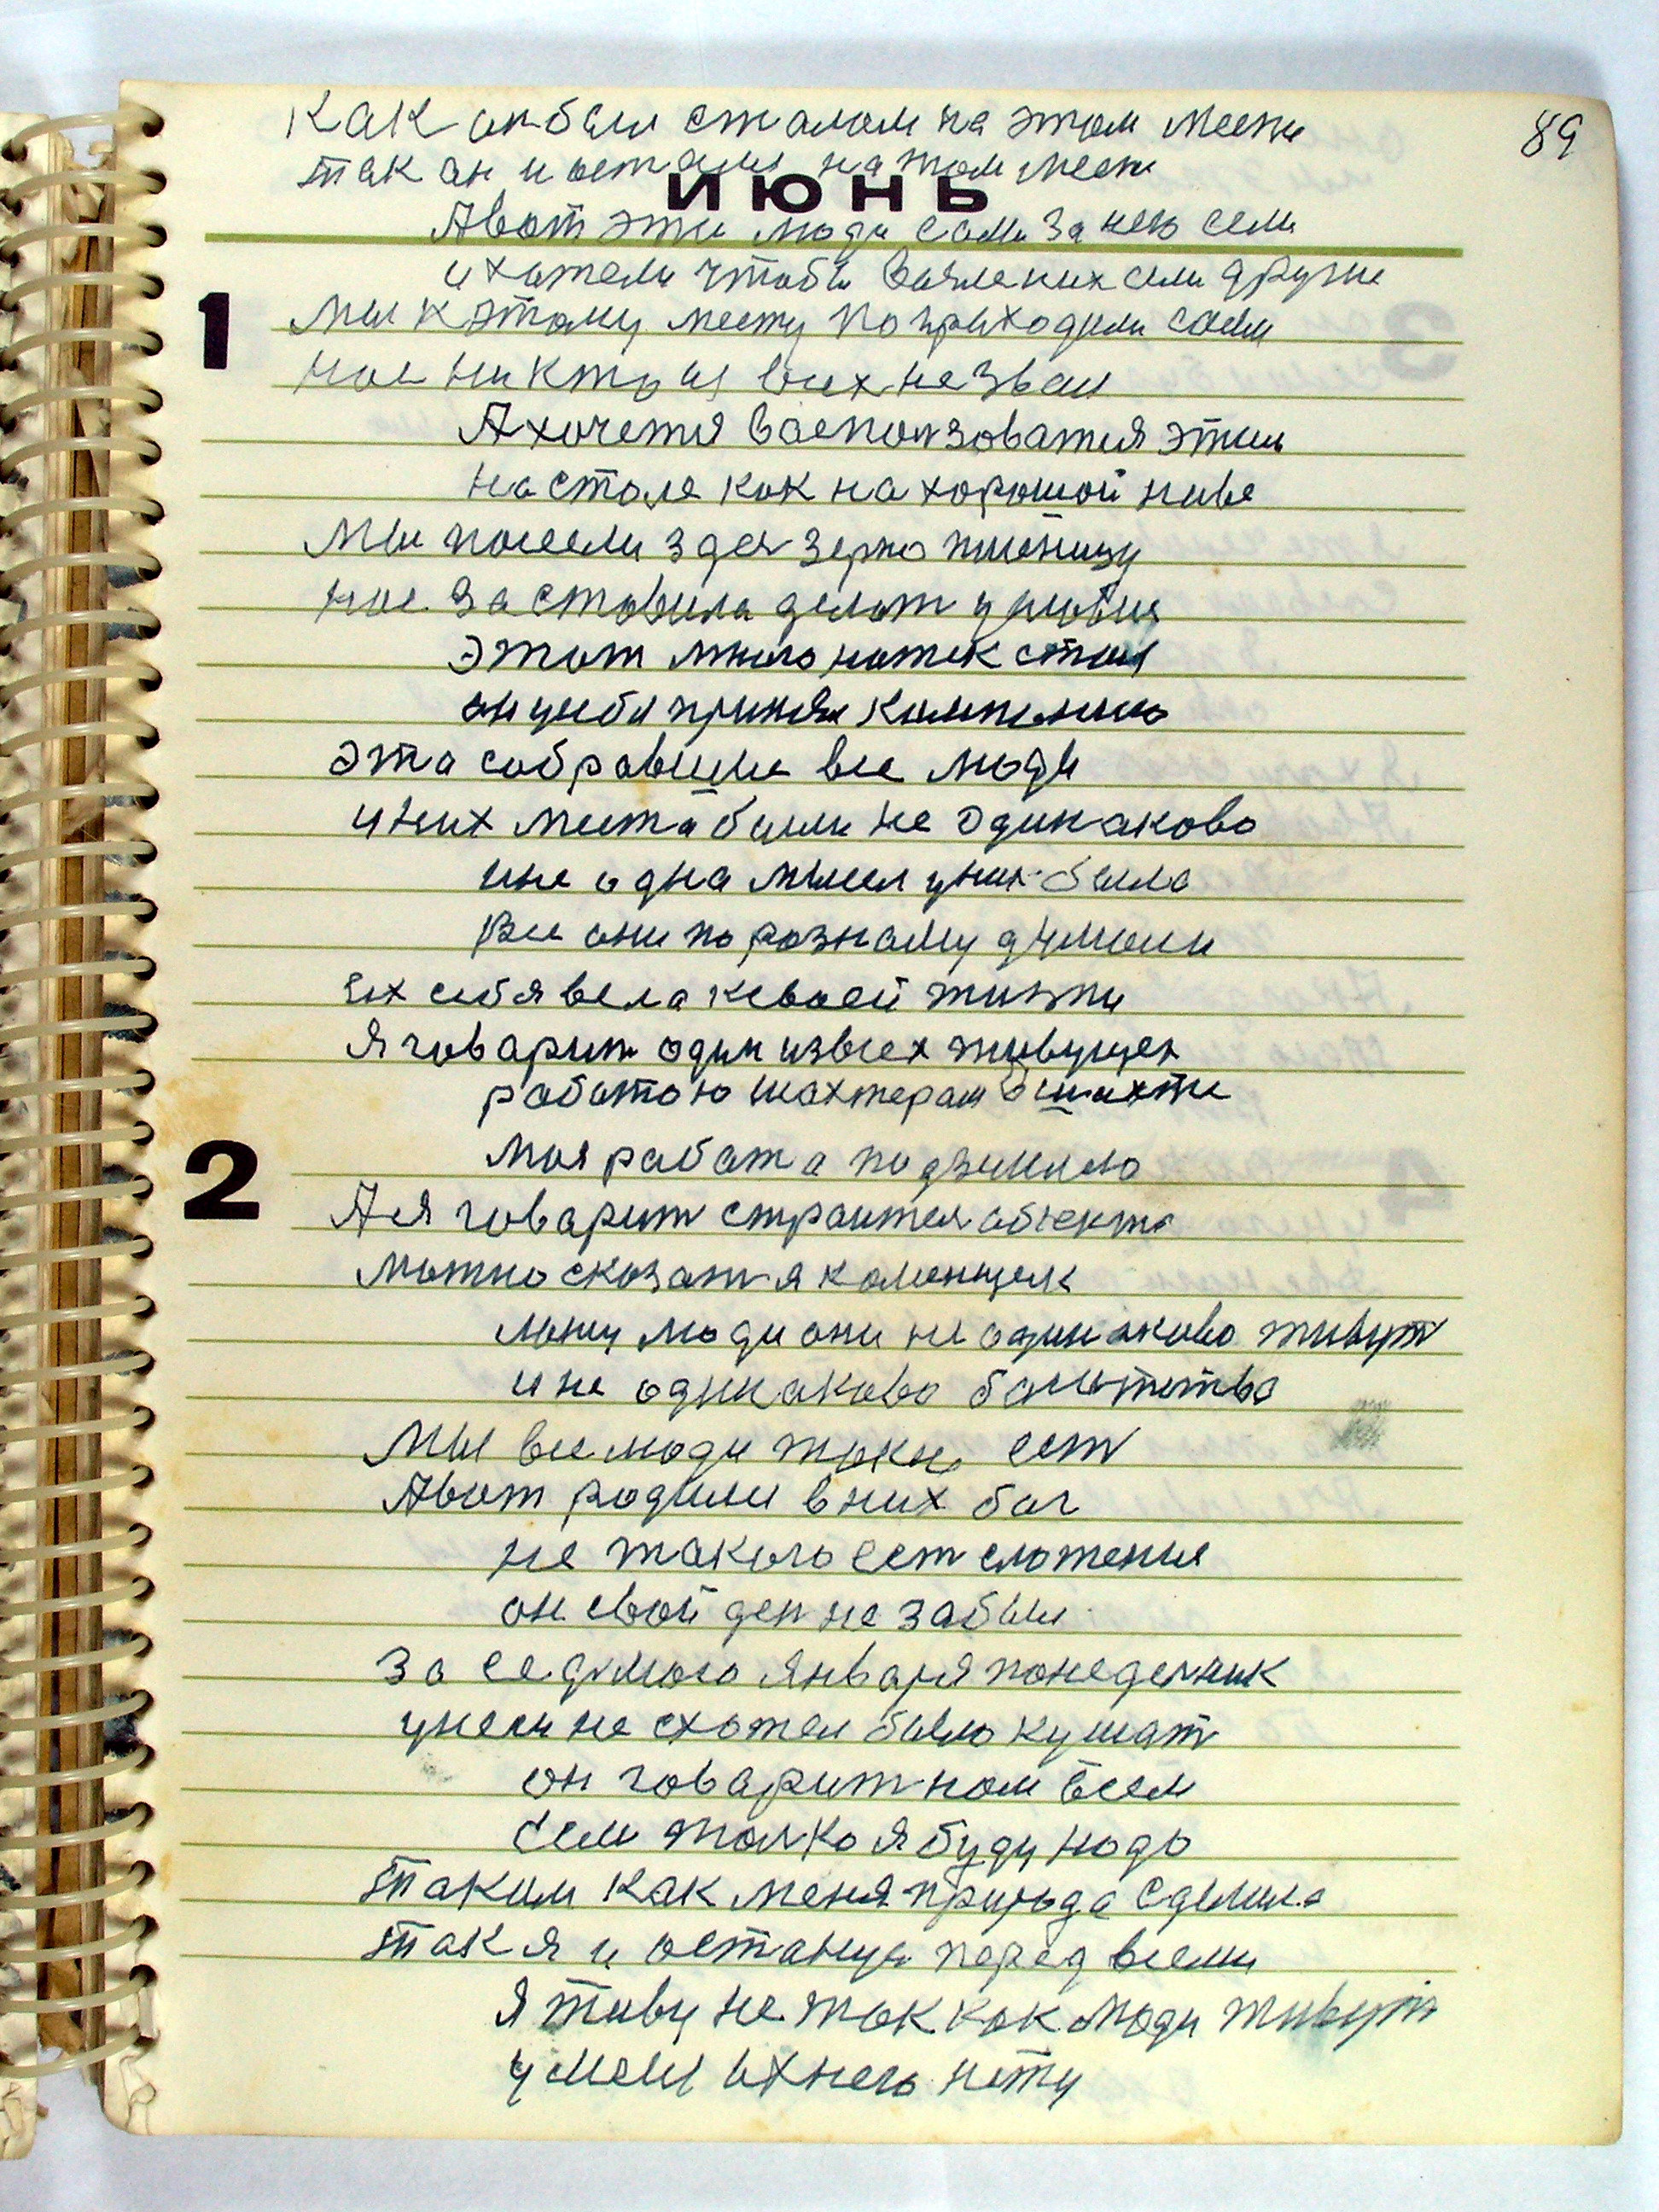 89
Как он был сталом на этом месте
так он и остался на том месте
ИЮНЬ
А вот эти люди сами за него сели
и хотели чтобы возле них сели другие
1
Мы к этому месту поприходили сами
нас никто из всех не звал
А хочется воспользоватя этим
на столе как на хорошой ниве
Мы посеели здес зерно пшеницу
нас заставила делат условия
Этот много ножек стол
он у себя принял компанию
Эта собравшие все люди
у них места были не одинаково
и не одна мысел у них была
Все они по розному думали
Их себя вела к своей жизни
Я говарит один из всех живущех
работою шахтерам в шахте
Моя работа подземного
2
А я говарит строится обекта
Можно сказат я каменщек
люди они не одинаково живут
и не одинаково богатетво
Мы все люди таки ест
А вот родился в них бог
не такого ест сложения
он свой ден не забыл
За седмого января понеделник
у него не схотел было кушат
он говарит нам всем
Если толко я буду надо
Таким как меня природа сделала
так я и останус перед всеми
Я живу не так как люди живут
у меня ихнего нету